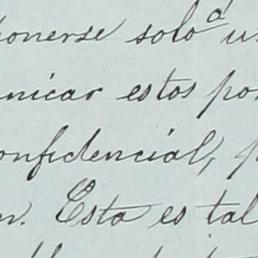 ponerse solo á u
nicar estos po
onfidencial, p
n. Esta es tal